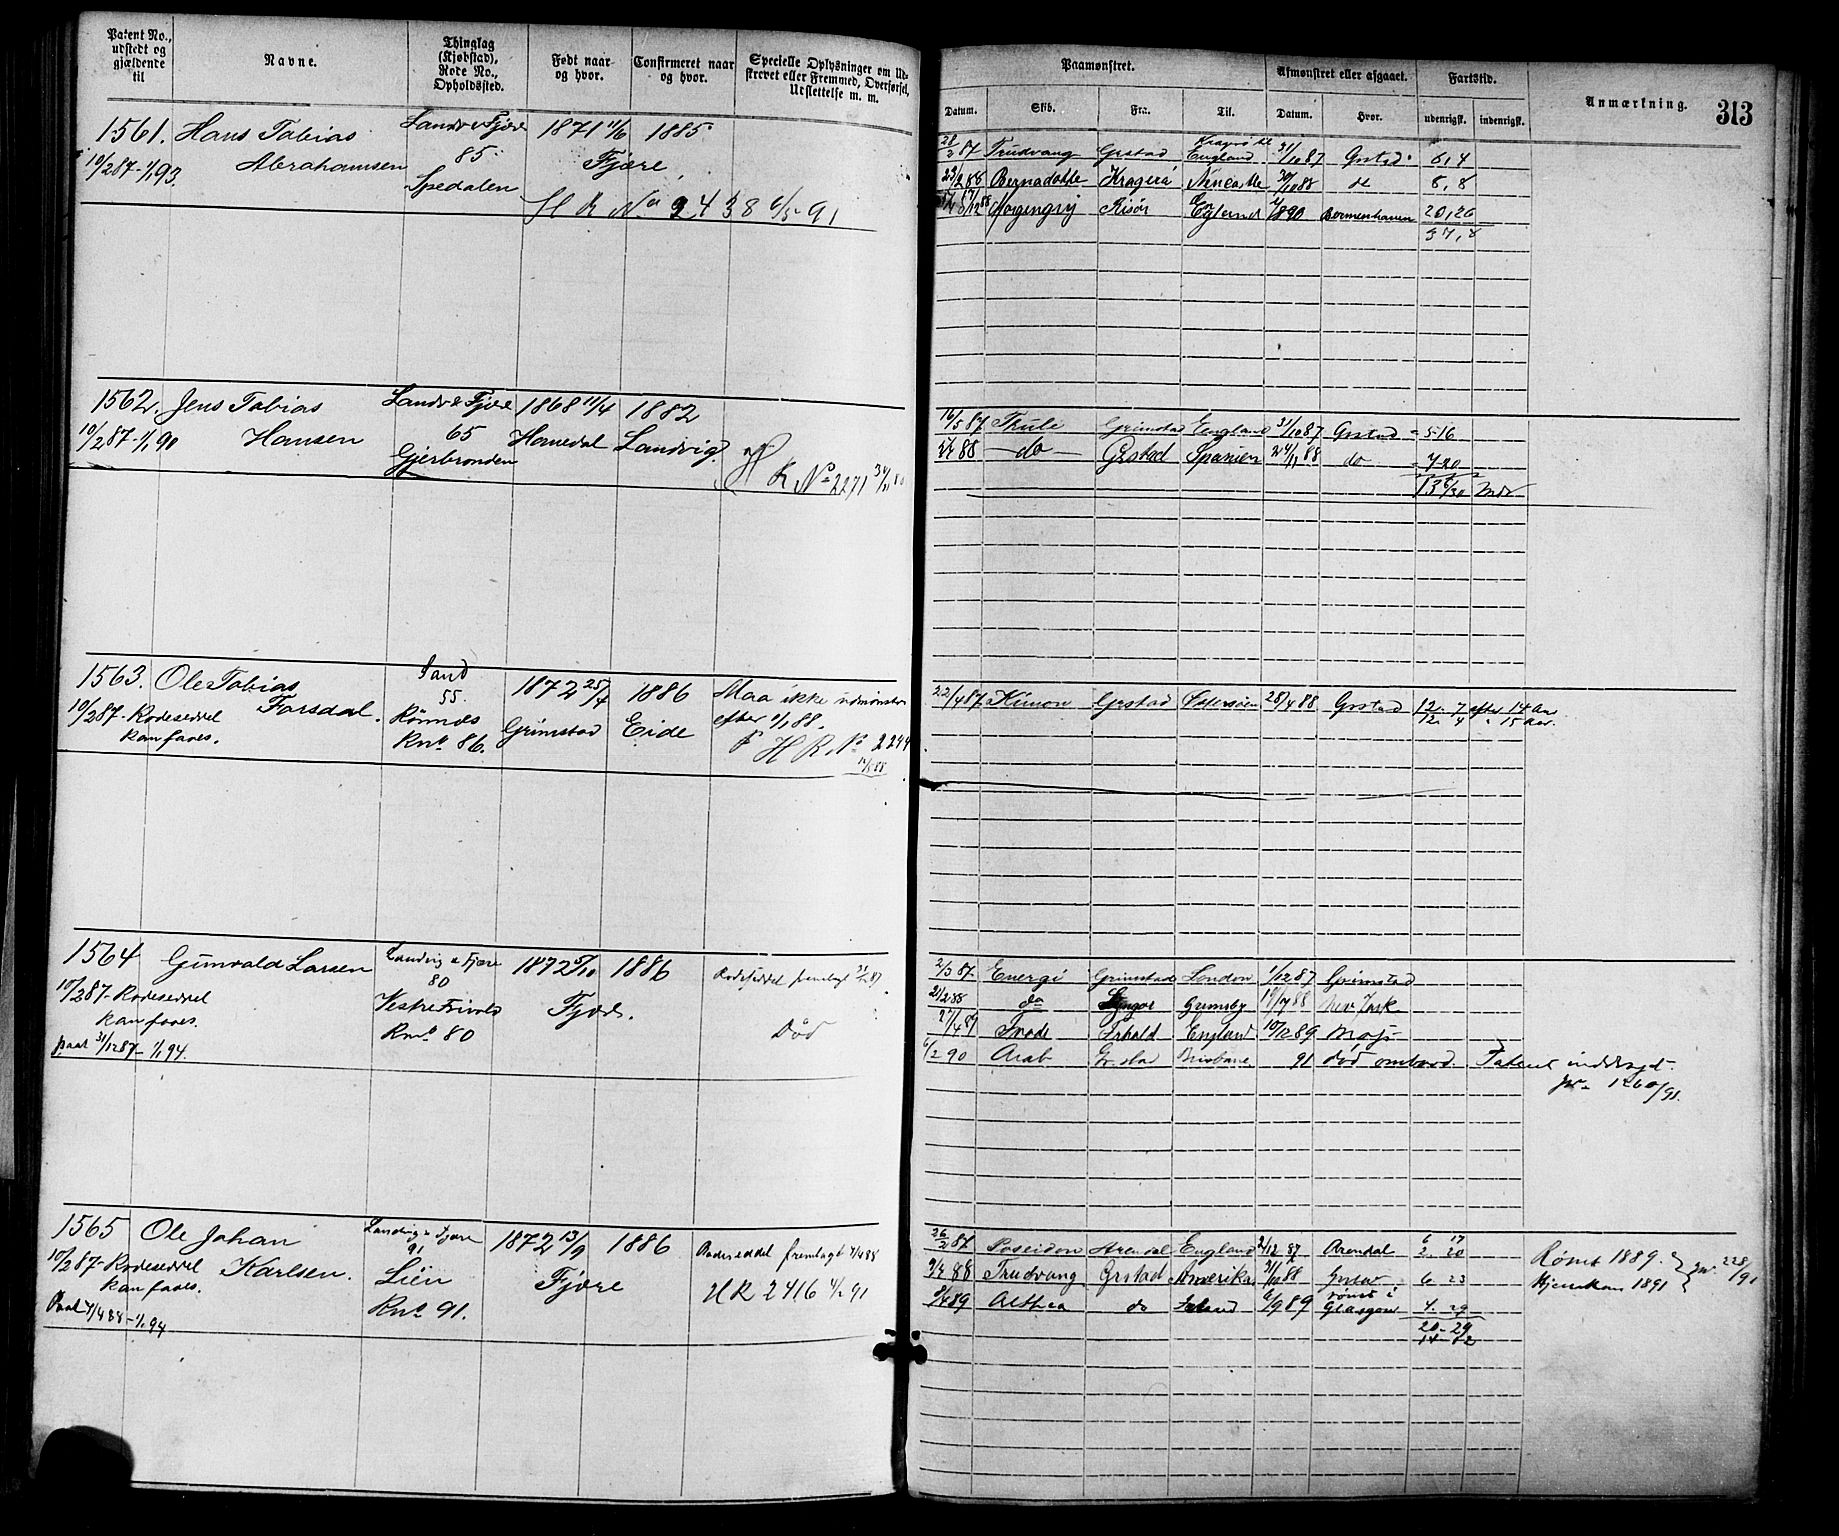 Patent No., udstedt og gjældende til
Navne.
Thinglag (Kjøbstad), Rode No., Opholdssted.
Født naar og hvor.
Confirmeret naar og hvor.
Specielle Oplysninger om Udskrevet eller Fremmed, Overførsel, Udslettelse m. m.
Paamønstret.
Afmønstret eller afgaaet.
Fartstid.
Anmærkning.
313
Datum. Skib. Fra. Til. Datum. Hvor. udenrigsk. indenrigsk.
1561. Hans Tobias Landv & Fjære 1871 11/6 1885
10/2 87-1/1 93. Abrahamsen 85 Fjære
Spedalen
H R No 2438 6/5 91
28/2 87 Trudvang Grstad England 31/10 87 Grstad 8,4
Bernadotte Kragerø Newcastle 30/10 88 do 8,8
Morgengry Risør England 90 20,26
37,8
1562. Jens Tobias Landv & Fjære 1868 11/4 1882
10/2 87-1/1 90 Hansen 65 Homedal Landvig.
Gjerbronden
H R No 2271
16/5 87 Thule Grimstad England 31/10 87 Grstad 5-16
88 do Grstad Spanien 24/11 88 do 7-20
13 6/30 Mdr
1563. Ole Tobias Sand 1872 25/4 1886 Maa ikke udmønstr
10/2 87- Rodeseddel Forsdal. 55. Grimstad Eide efter 1/1 88.
kan faaes. Rønnes
Rno 86.
H R No 2244
22/4 87 Kimon Grstad Østersøen 28/4 88 Grstad 12. 7 efter 14 Aar
12. 4 " 15 Aar.
1564 Gunvald Larsen Landvig & Fjære 1872 5/10 1886 Rodeseddel fremlagt 31/12 87
10/2 87- Rodeseddel 80
kan faaes. Vestre Fjære.
Rno 80 Død
paat 31/12 87-1/1 94.
2/3 87 Energi Grimstad London 1/12 87 Grimstad
21/2 88 do Grimsby 19/7 88 New York
27/4 89 England 10/12 89
6/2 90 Arab Grstad Brisbane 91 død ombord. Patent inddragt.
Jr. 1260/91.
1565 Ole Johan Landvig & Fjære 1872 13/9 1886 Rodeseddel fremlagt 7/4 88
10/2 87- Rodeseddel Karlsen. 91 Fjære
kan faaes. Lien H R 2416 4/2 91
Paat 7/4 88-1/1 94 Rno 91.
26/2 87 Poseidon Arendal England 2/12 87 Arendal 6 17
2. 20
9/4 88 Trudvang Grstad Amerika 31/10 88 Grstad 6 23
4/89 Althea do Island 6/9 89 rømt i Glasgow 4. 29
20-29
14 12
Rømt 1889.
Hjemkom 1891
Jr. 228/91